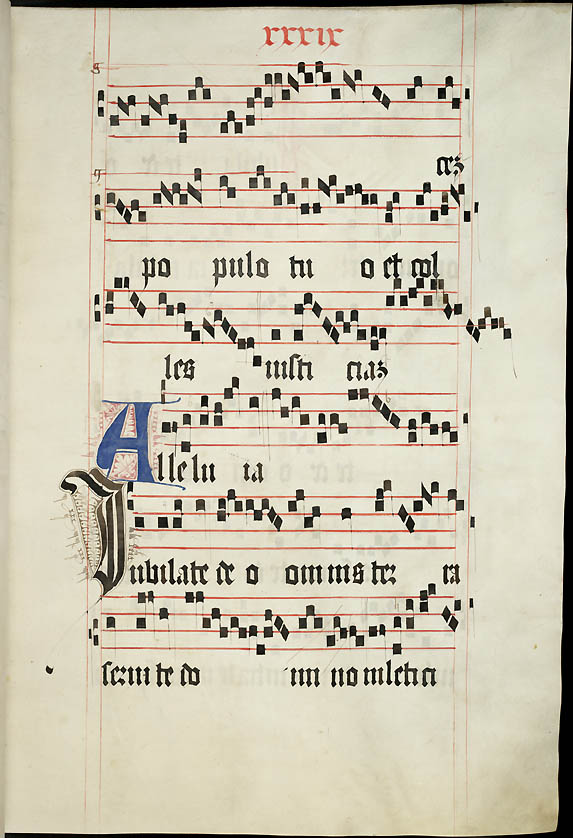 xxxix
ces
po pulo tu o et col
les iusti cias
Allelu ia
Jubilate de o omnis ter ra
serui te do mi no in leticia